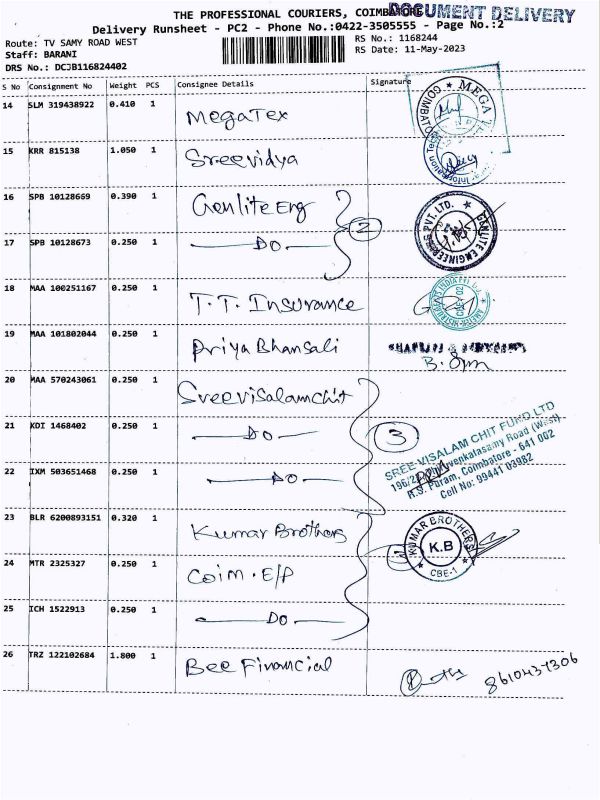 THE PROFESSIONAL COURIERS, COIMBATORE
DOCUMENT DELIVERY
Delivery Runsheet - PC2 - Phone No.:0422-3505555 - Page No.:2
Route: TV SAMY ROAD WEST
RS No.: 1168244
Staff: BARANI
RS Date: 11-May-2023
DRS No.: DCJB116824402
S No Consignment No Weight PCS Consignee Details Signature
14 SLM 319438922 0.410 1 MegaTex
COIMBATO * MEGA T
15 KRR 815138 1.050 1 Sreevidya
16 SPB 10128669 0.390 1 Genlite Eng
2
GANLITE ENGINEERING PVT. LTD. *
17 SPB 10128673 0.250 1 — Do —
18 MAA 100251167 0.250 1 T.T. Insurance
CBE - 02
19 MAA 101802044 0.250 1 Priya Bhansali
20 MAA 570243061 0.250 1 Sreevisalamchit
21 KDI 1468402 0.250 1 — Do —
3
SREE VISALAM CHIT FUND LTD
R.S. Puram, Coimbatore - 641 002
Cell No: 99441 03982
22 IXM 503651468 0.250 1 — Do —
23 BLR 6200893151 0.320 1 Kumar Brothers
KUMAR BROTHERS
K.B
* CBE-1 *
24 MTR 2325327 0.250 1 Coim. E/P
25 ICH 1522913 0.250 1 — Do —
26 TRZ 122102684 1.800 1 Bee Financial
8610437306